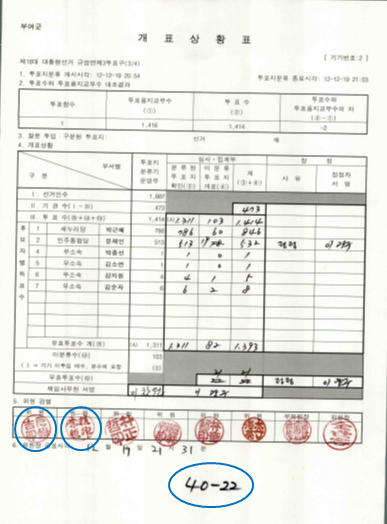 부여군
개 표 상 황 표
[ 기기번호 : 2 ]
제18대 대통령선거 규암면제3투표구(3/4)
1. 투표지분류 개시시각 : 12-12-19 20:54 투표지분류 종료시각 : 12-12-19 21:03
2. 투표수와 투표용지교부수 대조결과
투표함수 투표용지교부수 (①) 투 표 수 (②) 투표수와 투표용지교부수의 차 (②-①)
1 1,416 1,414 -2
3. 잘못 투입·구분된 투표지: 선거 매
4. 개표상황
구 분 부서명 투표지 분류기 운영부 심사·집계부 정 정
분류된 투표지 확인(③) 미분류 투표지 개표(④) 계 (③+④) 사 유 정정자 서 명
Ⅰ. 선거인수 1,887
Ⅱ. 기 권 수 (Ⅰ-Ⅲ) 473 473
Ⅲ. 투 표 수 1,414 1,311 103 1,414
후보자별득표수
1 새누리당 박근혜 786 786 60 846
2 민주통합당 문재인 513 513 19 532 정정
4 무소속 박종선 1 1 0 1
5 무소속 김소연 1 1 0 1
6 무소속 강지원 4 4 1 5
7 무소속 김순자 6 6 2 8
유효투표수 계 (A) 1,311 1,311 82 1,393
미분류수 103
( ) = 기기 이후입 매수, 분수에 포함 (3)
무효투표수 정정
책임사무원 서명
5. 위원 검열
위 원 위 원 위 원 위 원 부위원장 위원장
6. 위원장 공표시각 : 12 월 19 일 21 시 31 분
40-22